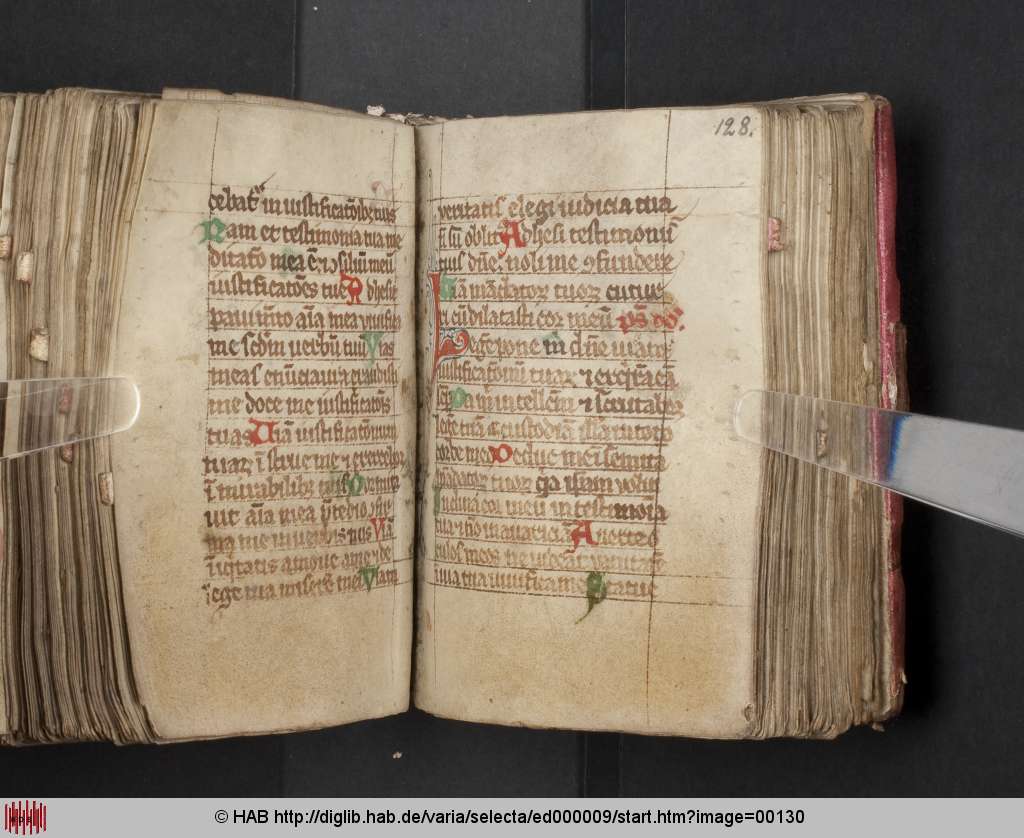 cebat͛ in iustificatōıbꝫ tuis
Nam et testimonia tua me
ditatō mea ē: ⁊ ꝯsiliū meū
iustificatōes tue Adhesit
pauimēto aīa mea viuifica
me scdm̄ verbū tuū Vias
meas enūciaui ⁊ exaudisti
me doce me iustificatōes
tuas Uiā iustificatōnum
tuaꝝ īstrue me ⁊ exercebor
ī mirabilibꝫ tuis Dormita
uit aīa mea p̄ tedio ꝯfir
ma me in verbis tuis Viā
iniq̄tatis amoue a me ⁊ de
lege tua miserē mei Viam
128.
veritatis elegi iudicia tua
nō sū oblitꝰ Adhesi testimoniis
tuis dn̄e: noli me ꝯfundere
Uiā mādatoꝝ tuoꝝ cucur
ri cū dilatasti cor meū ps̄
Lege pone m dn̄e viam
iustificatōnū tuaꝝ ⁊ exqrā eā
sēp Da m intellcm̄ ⁊ scrutabor
legē tuā ⁊ custodiā illā ī toto
corde meo Deduc me ī semita
mādatoꝝ tuoꝝ qꝛ ipam volui
Inclina cor meū in testimonia
tua ⁊ nō ī auaritiā Auerte o
culos meos ne videāt vanitatē
ī via tua viuifica me Statue
© HAB http://diglib.hab.de/varia/selecta/ed000009/start.htm?image=00130